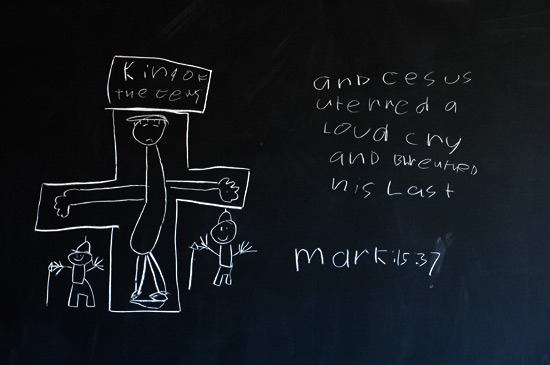 King OF
the Cews
and Cesus
uterred a
Loud cry
and Breathed
his Last
mark:15:37